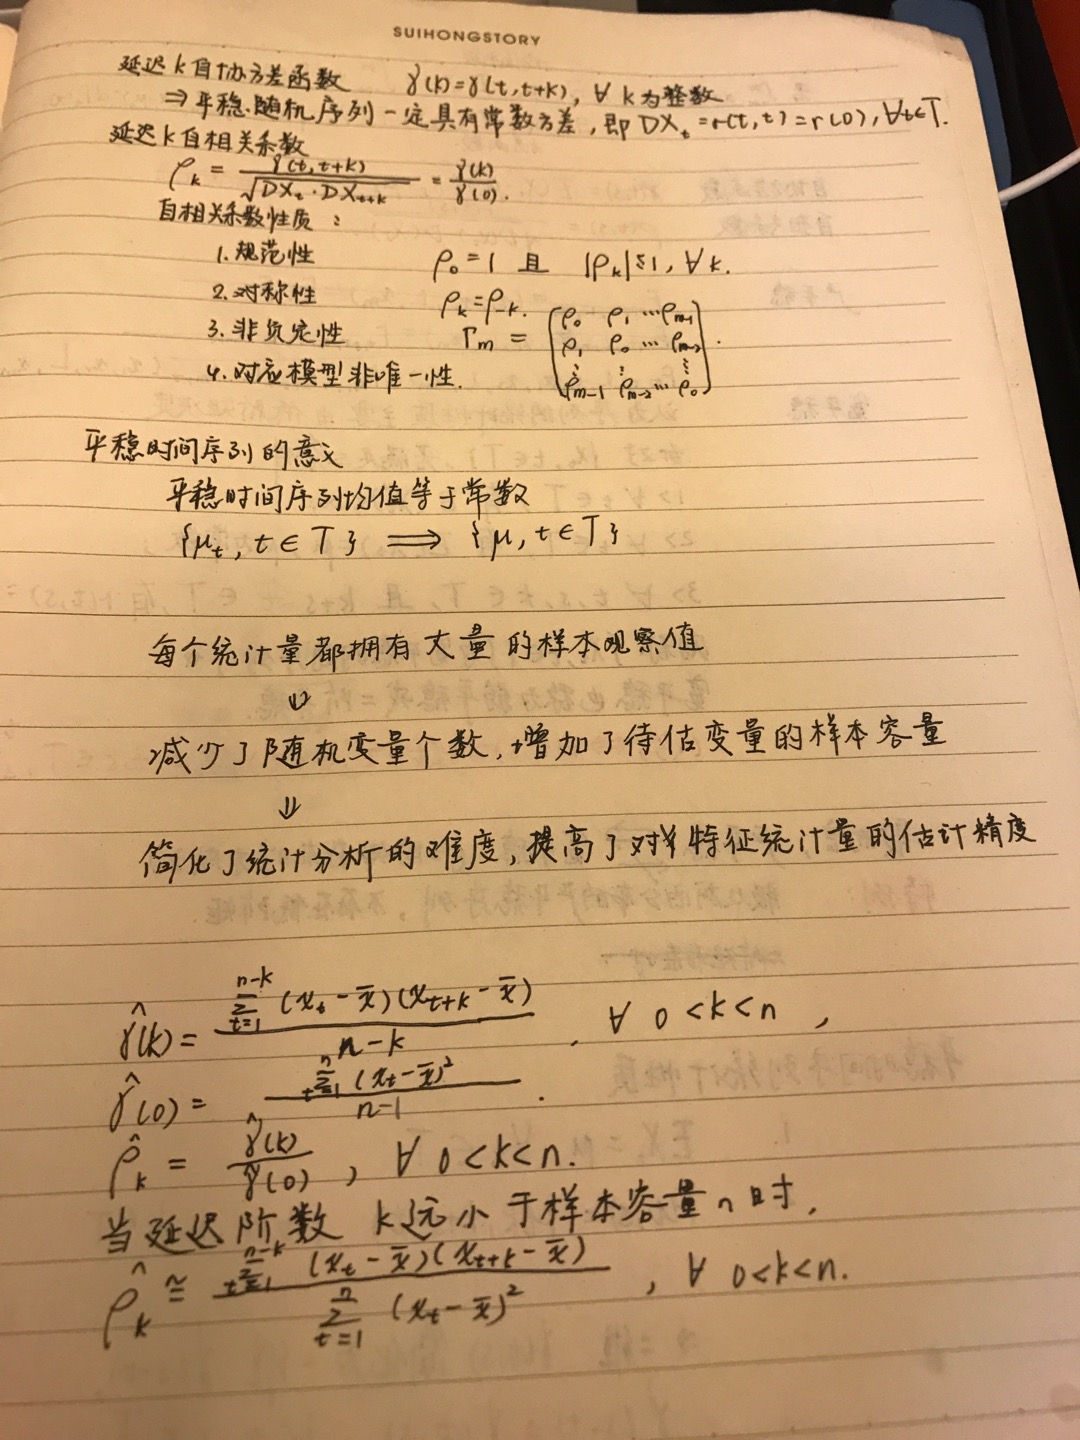 SUIHONGSTORY
延迟k自协方差函数 γ(k)=γ(t,t+k), ∀ k为整数
⇒ 平稳随机序列一定具有常数方差, 即 DX_t=r(t,t)=r(0), ∀t∈T.
延迟k自相关系数
ρ_k = γ(t,t+k)/√(DX_t·DX_{t+k}) = γ(k)/γ(0).
自相关系数性质:
1.规范性 ρ_0=1 且 |ρ_k|≤1, ∀k.
2.对称性 ρ_k=ρ_{-k}.
3.非负定性 Γ_m = [ρ_0 ρ_1 ⋯ρ_{m-1}
ρ_1 ρ_0 ⋯ ρ_{m-2}
⋮ ⋮ ⋮
4.对应模型非唯一性. ρ_{m-1} ρ_{m-2} ⋯ ρ_0].
平稳时间序列的意义
平稳时间序列均值等于常数
{μ_t, t∈T} ⟹ {μ, t∈T}
每个统计量都拥有大量的样本观察值
⇓
减少了随机变量个数,增加了待估变量的样本容量
⇓
简化了统计分析的难度,提高了对特征统计量的估计精度
γ̂(k)= Σ_{t=1}^{n-k}(x_t-x̄)(x_{t+k}-x̄)/(n-k), ∀ 0<k<n,
γ̂(0)= Σ_{t=1}^{n}(x_t-x̄)²/(n-1).
ρ̂_k = γ̂(k)/γ̂(0), ∀ 0<k<n.
当延迟阶数 k远小于样本容量n时,
ρ̂_k ≅ Σ_{t=1}^{n-k}(x_t-x̄)(x_{t+k}-x̄)/Σ_{t=1}^{n}(x_t-x̄)², ∀ 0<k<n.